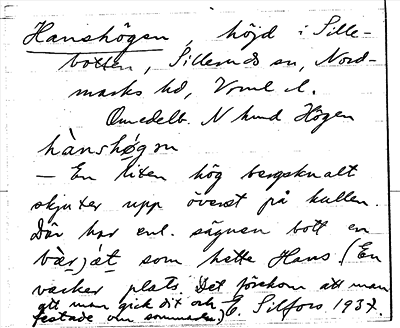 Hanshögen, höjd i Sille-
botten, Silleruds sn, Nord-
marks hd, Vrml l.
Omedelb. N hmd Högen
hànshǿgn
— En liten hög bergsknalt
skjuter upp överst på kullen.
Där har enl. sägnen bott en
bær)át som hette Hans. (En
vacker plats. Det förekom att man
att man gick dit och
festade om sommaren.) E. Silfors 1937.